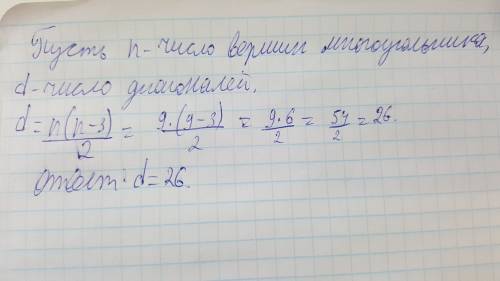 Пусть n - число вершин многоугольника,
d - число диагоналей.
d = n(n-3)/2 = 9·(9-3)/2 = 9·6/2 = 54/2 = 26.
Ответ: d = 26.